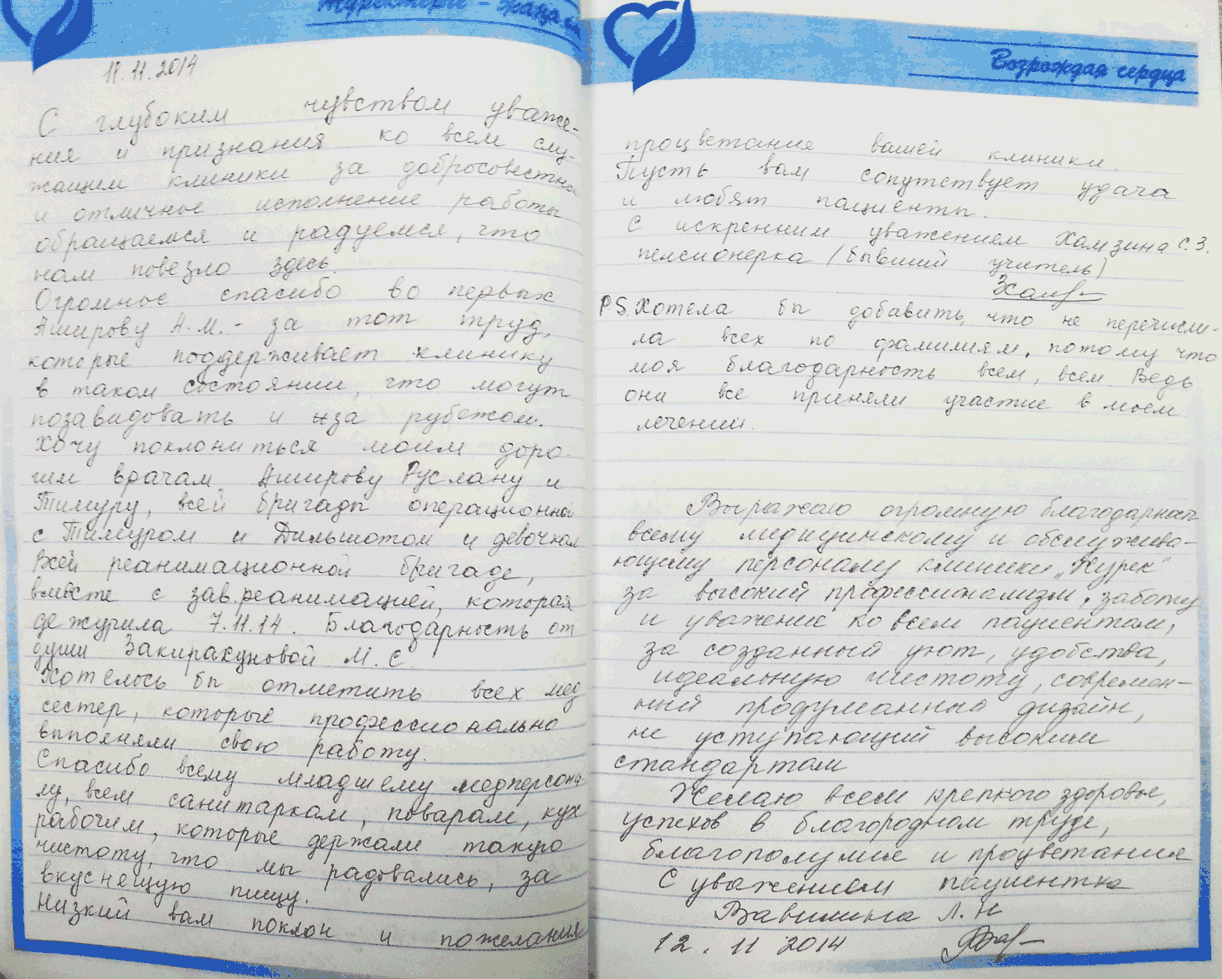 Жүректерге - жаңа
11.11.2014
С глубоким чувством уваже-
ния и признания ко всем слу-
жащим клиники за добросовестное
и отличное исполнение работы
обращаемся и радуемся, что
нам повезло здесь.
Огромное спасибо во первых
Аширову А.М. - за тот труд,
которые поддерживает клинику
в таком состоянии, что могут
позавидовать и за рубежом.
Хочу поклониться моим доро-
гим врачам Аширову Руслану и
Тимуру, всей бригады операционной
с Тимуром и Дильшотом и девочкам
Всей реанимационной бригаде,
вместе с зав.реанимацией, которая
дежурила 7.11.14. Благодарность от
души Закирахуновой М.С.
Хотелось бы отметить всех мед
сестер, которые профессионально
выполняли свою работу.
Спасибо всему младшему медперсона
лу, всем санитаркам, поварам, кух
рабочим, которые держали такую
чистоту, что мы радовались, за
вкуснящую пищу.
Низкий вам поклон и пожелания
Возрождая сердца
процветание вашей клиники.
Пусть вам сопутствует удача
и любят пациенты.
С искренним уважением Хамзина С.З.
пенсионерка (бывший учитель)
PS. Хотела бы добавить, что не перечисли-
ла всех по фамилиям, потому что
моя благодарность всем, всем. Ведь
они все приняли участие в моем
лечении.
Выражаю огромную благодарность
всему медицинскому и обслужива-
ющему персоналу клиники „Жүрек"
за высокий профессионализм, заботу
и уважение ко всем пациентам,
за созданный уют, удобства,
идеальную чистоту, современ-
ный продуманный дизайн,
не уступающий высоким
стандартам
Желаю всем крепкого здоровье,
успехов в благородном труде,
благополучия и процветания
С уважением пациентка
Вавилина Л.Н
12.11 2014